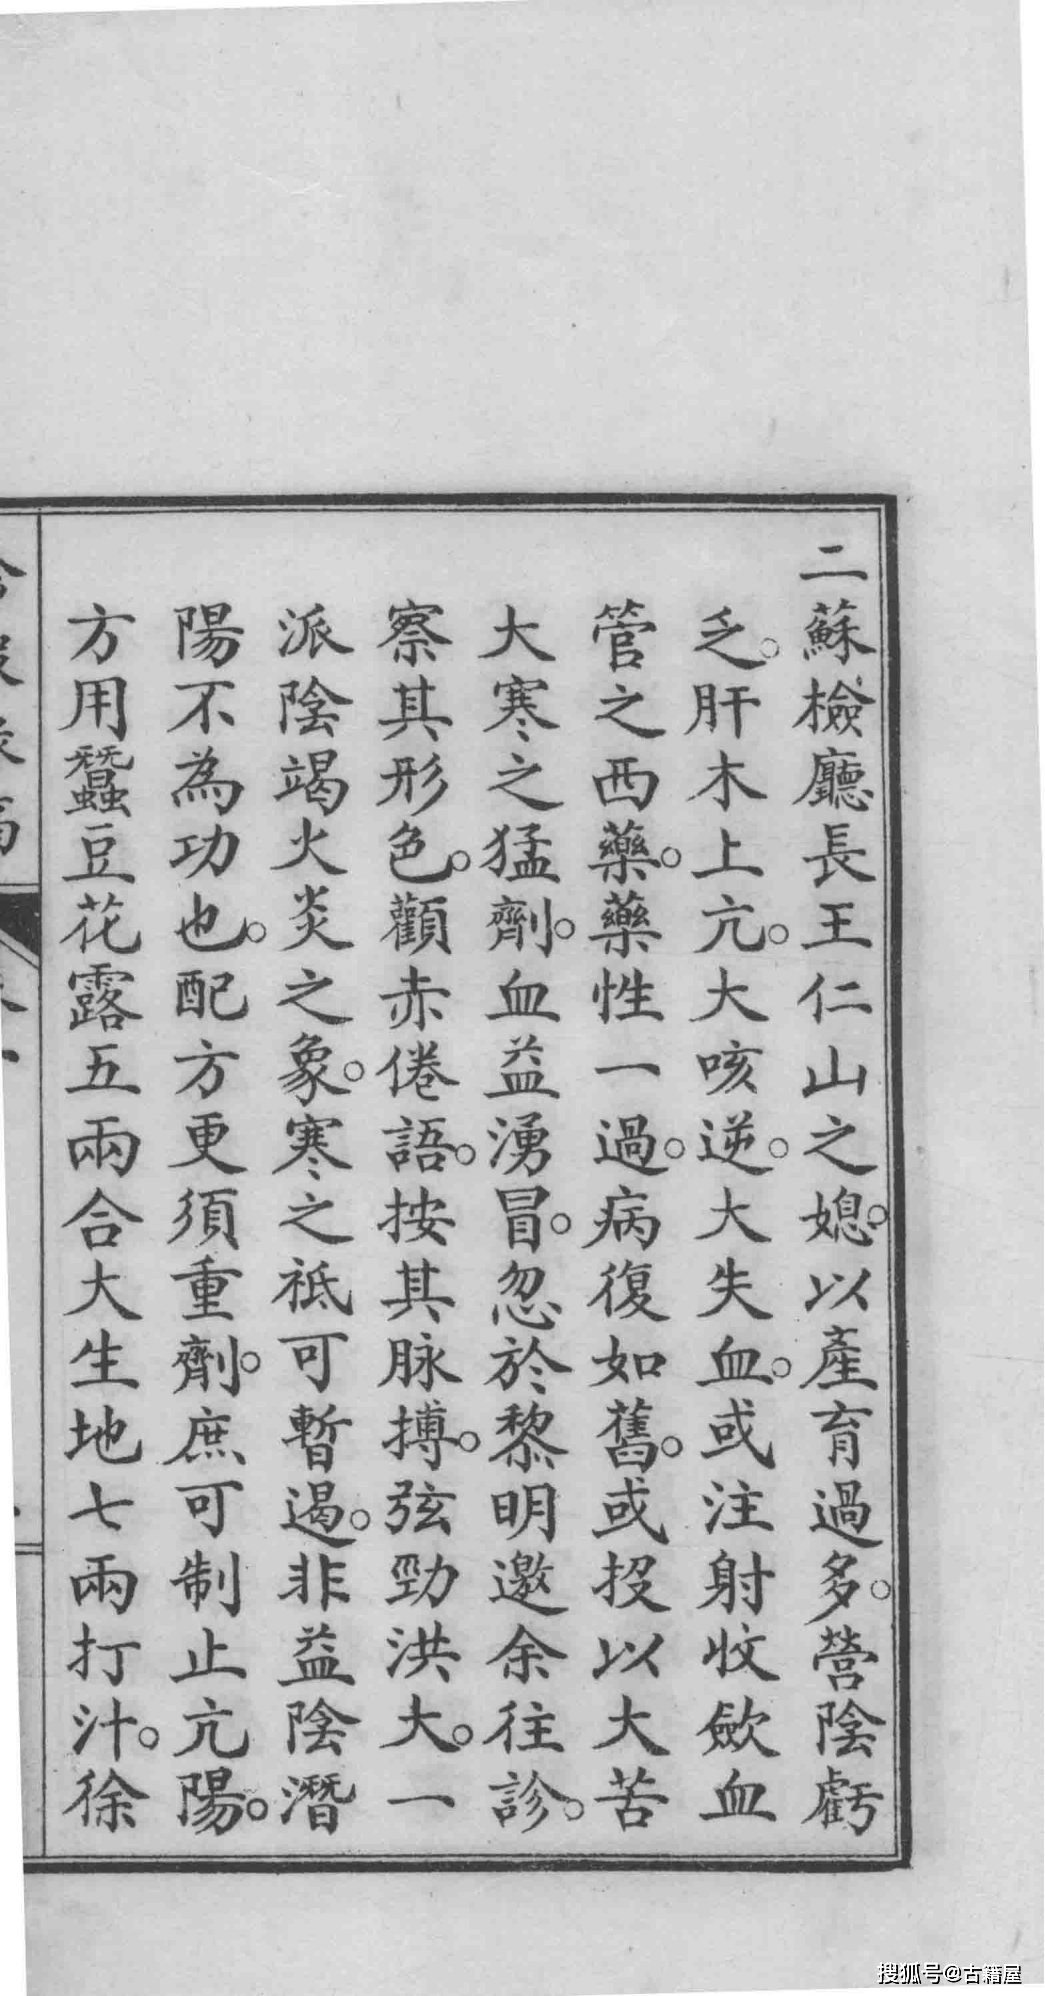 二蘇檢廳長王仁山之媳。以產育過多。營陰虧
乏。肝木上亢。大咳逆。大失血。或注射收歛血
管之西藥。藥性一過。病復如舊。或投以大苦
大寒之猛劑。血益湧冒。忽於黎明邀余往診。
察其形色。顴赤倦語。按其脉搏。弦勁洪大。一
派陰竭火炎之象。寒之祗可暫遏。非益陰潛
陽不為功也。配方更須重劑。庶可制止亢陽。
方用蠶豆花露五兩合大生地七兩打汁。徐
搜狐号@古籍屋